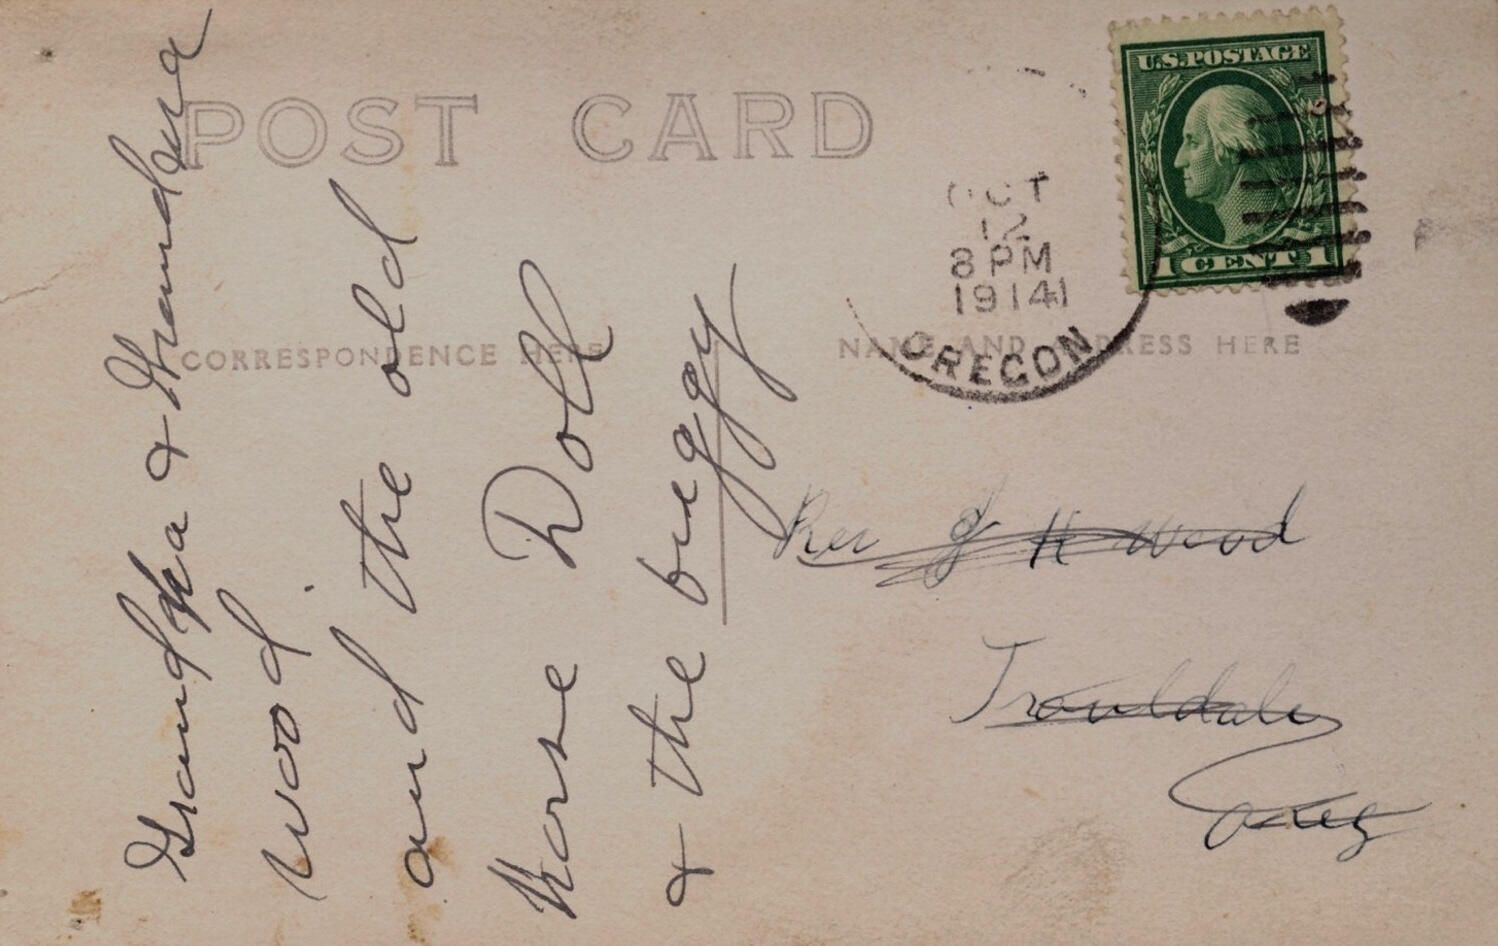 POST CARD
U.S. POSTAGE
1 CENT 1
OCT
12
8 PM
1914
OREGON
CORRESPONDENCE HERE
NAME AND ADDRESS HERE
Grandpa & Grandma
Wood.
and the old
horse Doll
& the buggy
Rev J H Wood
Troutdale
Oreg